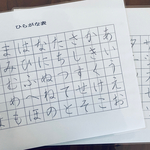 ひらがな表
まはなたさかあ
みひにちしきい
むふぬつすくう
めへねてせけえ
もほのとそこお